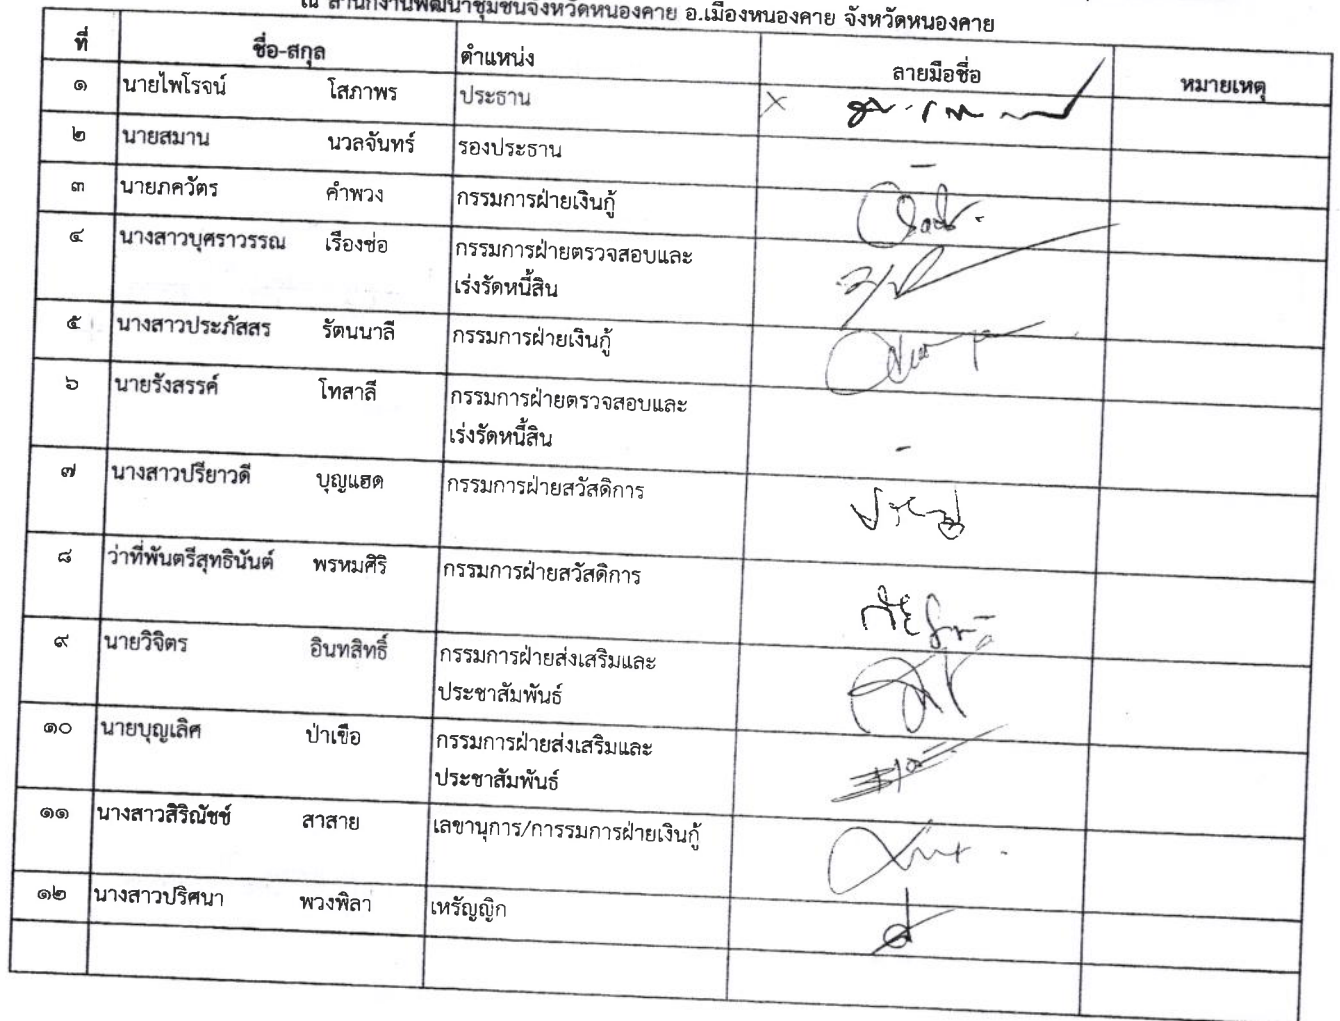 ณ สำนักงานพัฒนาชุมชนจังหวัดหนองคาย อ.เมืองหนองคาย จังหวัดหนองคาย
ที่ ชื่อ-สกุล ตำแหน่ง ลายมือชื่อ หมายเหตุ
๑ นายไพโรจน์ โสภาพร ประธาน
๒ นายสมาน นวลจันทร์ รองประธาน -
๓ นายภควัตร คำพวง กรรมการฝ่ายเงินกู้
๔ นางสาวบุศราวรรณ เรืองช่อ กรรมการฝ่ายตรวจสอบและ
เร่งรัดหนี้สิน
๕ นางสาวประภัสสร รัตนนาลี กรรมการฝ่ายเงินกู้
๖ นายรังสรรค์ โทสาลี กรรมการฝ่ายตรวจสอบและ
เร่งรัดหนี้สิน -
๗ นางสาวปรียาวดี บุญแฮด กรรมการฝ่ายสวัสดิการ
๘ ว่าที่พันตรีสุทธินันต์ พรหมศิริ กรรมการฝ่ายสวัสดิการ
๙ นายวิจิตร อินทสิทธิ์ กรรมการฝ่ายส่งเสริมและ
ประชาสัมพันธ์
๑๐ นายบุญเลิศ ป่าเขือ กรรมการฝ่ายส่งเสริมและ
ประชาสัมพันธ์
๑๑ นางสาวสิริณัชช์ สาสาย เลขานุการ/การรมการฝ่ายเงินกู้
๑๒ นางสาวปริศนา พวงพิลา เหรัญญิก